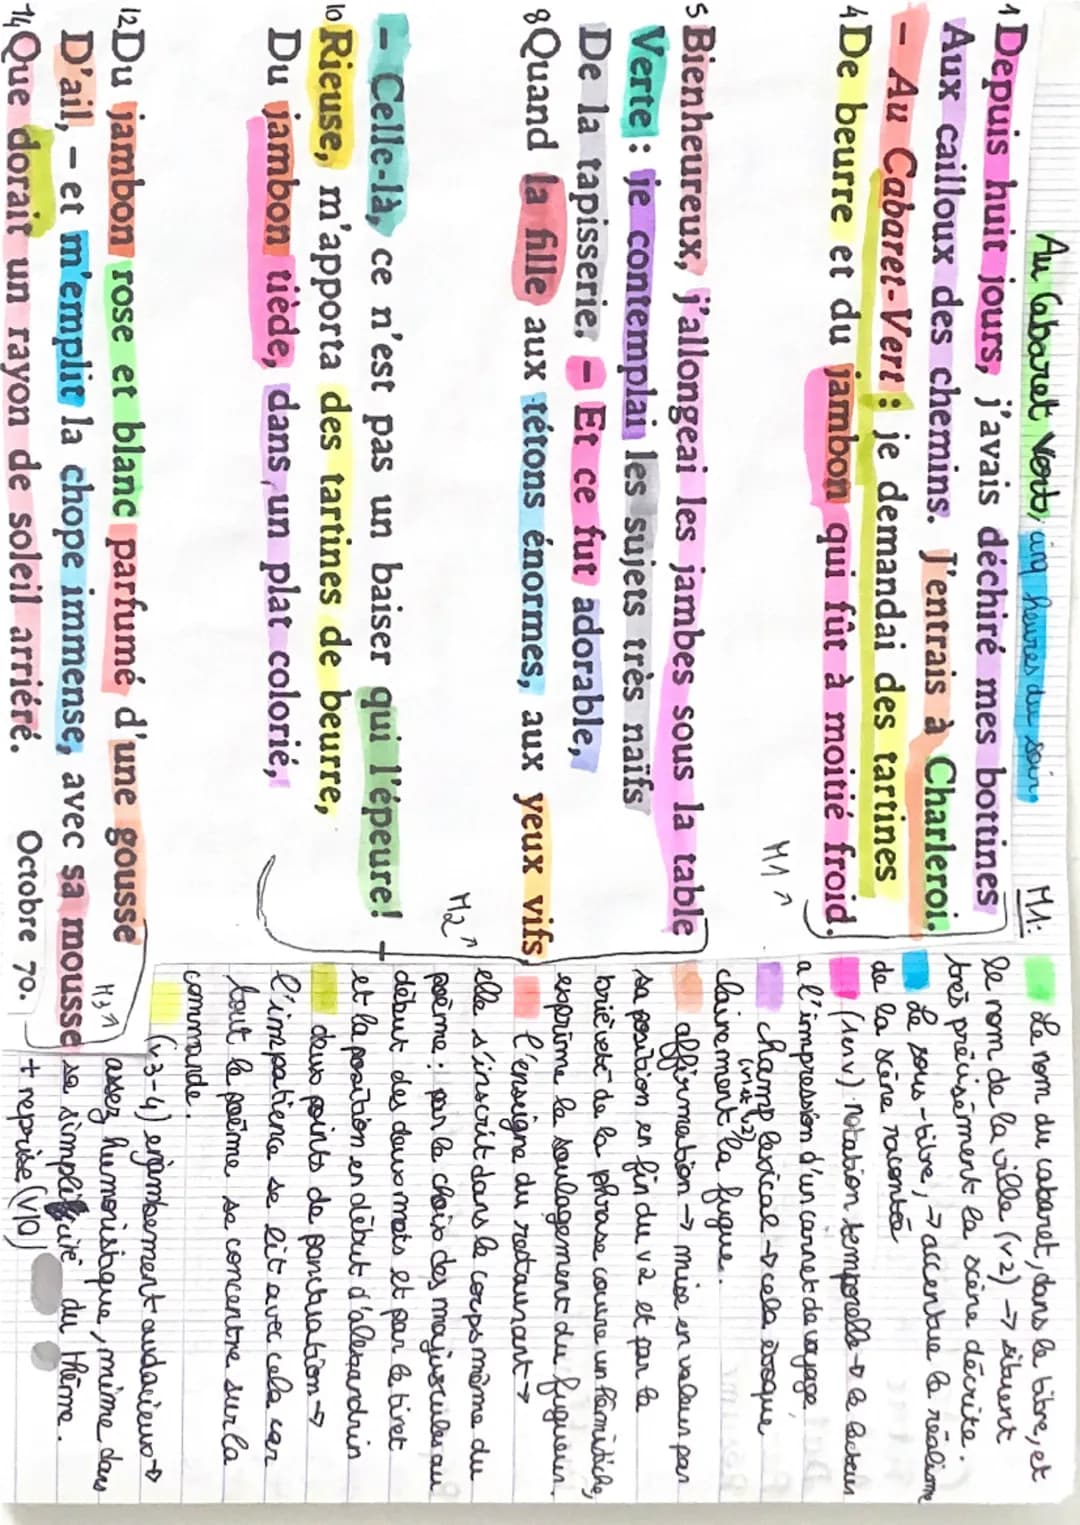 Au Cabaret Vert, cinq heures du soir
1 Depuis huit jours, j'avais déchiré mes bottines
Aux cailloux des chemins. J'entrais à Charleroi.
– Au Cabaret-Vert : je demandai des tartines
4 De beurre et du jambon qui fût à moitié froid.
M1
5 Bienheureux, j'allongeai les jambes sous la table
Verte : je contemplai les sujets très naïfs
De la tapisserie. – Et ce fut adorable,
8 Quand la fille aux tétons énormes, aux yeux vifs,
M2
– Celle-là, ce n'est pas un baiser qui l'épeure ! –
10 Rieuse, m'apporta des tartines de beurre,
Du jambon tiède, dans un plat colorié,
12 Du jambon rose et blanc parfumé d'une gousse
D'ail, – et m'emplit la chope immense, avec sa mousse
14 Que dorait un rayon de soleil arriéré.
M3
Octobre 70.
M1:
Le nom du cabaret, dans le titre, et
le nom de la ville (v2) → situent
très précisément la scène décrite.
Le sous-titre, → accentue le réalisme
de la scène racontée
(1erv) notation temporelle → le lecteur
a l'impression d'un carnet de voyage
champ lexical → cela évoque
clairement la fugue.
affirmation → mise en valeur par
sa position en fin du v2 et par la
brièveté de la phrase couvre un hémistiche,
exprime le soulagement du fugueur.
l'enseigne du restaurant →
elle s'inscrit dans le corps même du
poème : par le choix des majuscules au
début des deux mots et par le tiret
et la position en début d'alexandrin
deux points de ponctuation →
l'impatience se lit avec cela car
tout le poème se concentre sur la
commande.
(v3-4) enjambement audacieux →
assez humoristique, même dans
sa simplicité du thème.
+ reprise (v10)